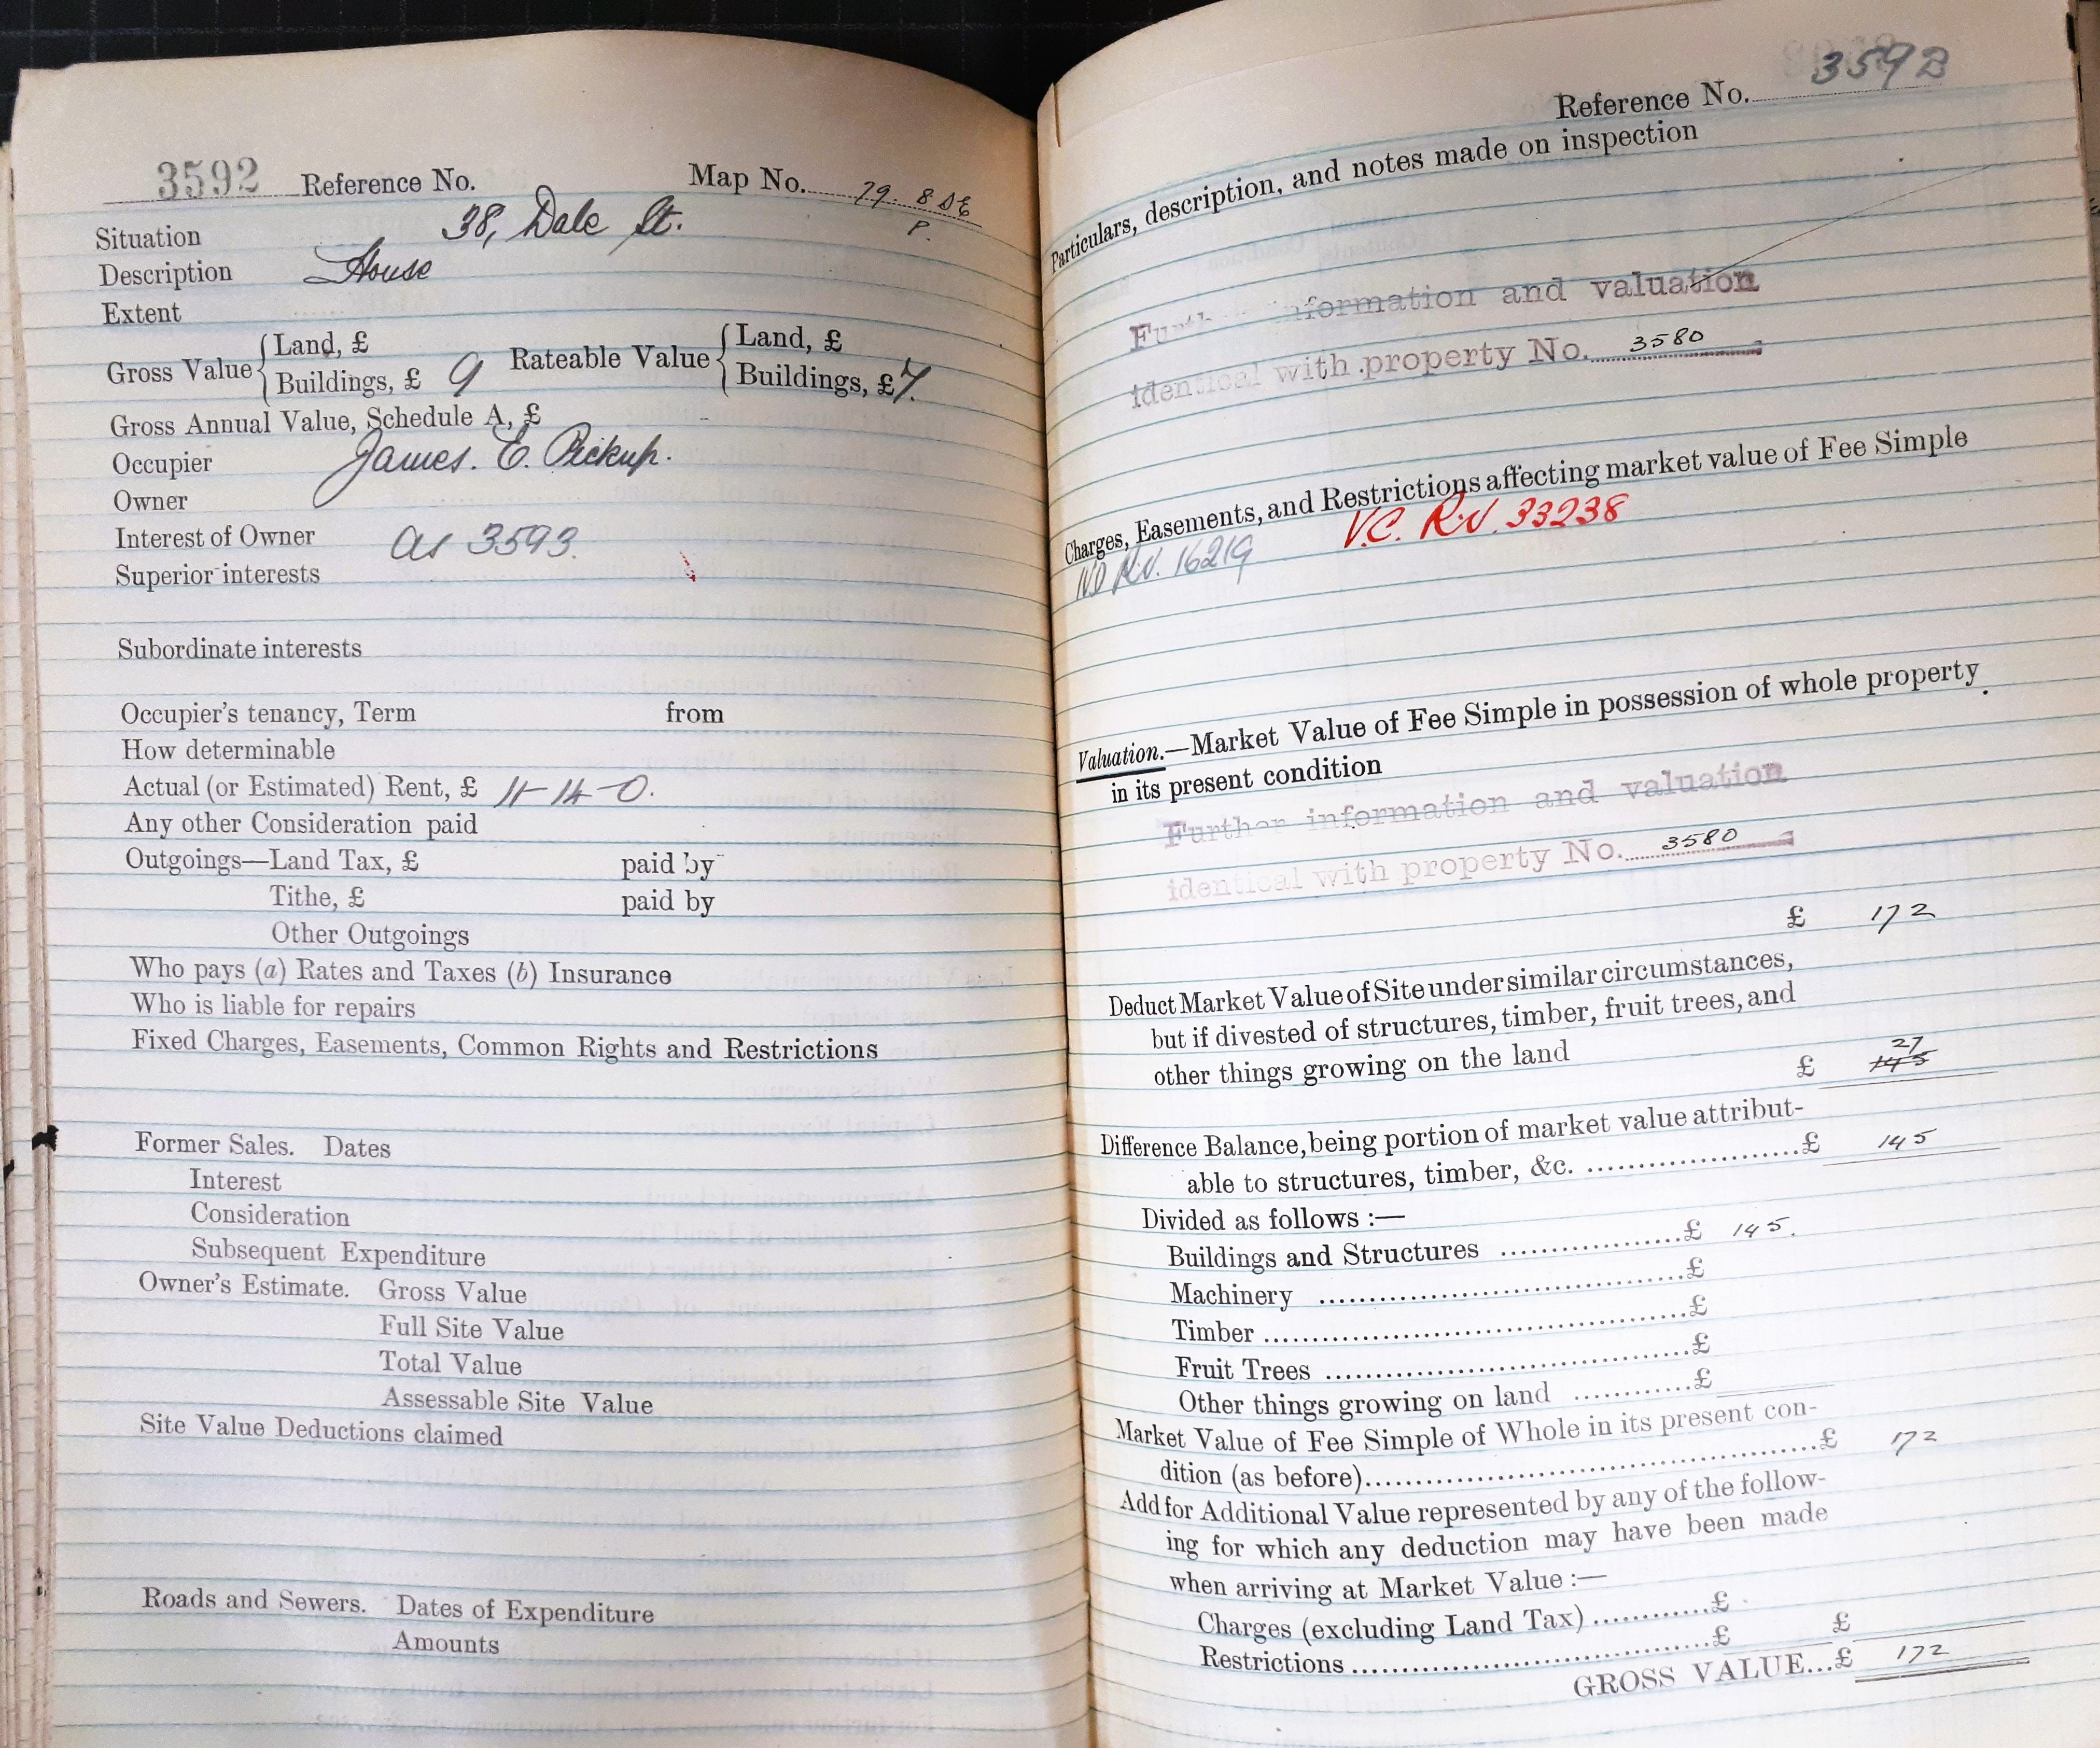 3592 Reference No. Map No. 79. 8 SE
P.
Situation 38, Dale St.
Description House
Extent
Gross Value { Land, £
Buildings, £ 9 Rateable Value { Land, £
Buildings, £ 7.
Gross Annual Value, Schedule A, £
Occupier James. E. Pickup.
Owner
Interest of Owner as 3593.
Superior interests
Subordinate interests
Occupier's tenancy, Term from
How determinable
Actual (or Estimated) Rent, £ 11-14-0.
Any other Consideration paid
Outgoings—Land Tax, £ paid by
Tithe, £ paid by
Other Outgoings
Who pays (a) Rates and Taxes (b) Insurance
Who is liable for repairs
Fixed Charges, Easements, Common Rights and Restrictions
Former Sales. Dates
Interest
Consideration
Subsequent Expenditure
Owner's Estimate. Gross Value
Full Site Value
Total Value
Assessable Site Value
Site Value Deductions claimed
Roads and Sewers. Dates of Expenditure
Amounts
Reference No. 3592
Particulars, description, and notes made on inspection
Further information and valuation
identical with property No. 3580
Charges, Easements, and Restrictions affecting market value of Fee Simple
V.C. R.V. 33238
NO R.V. 16219
Valuation.—Market Value of Fee Simple in possession of whole property
in its present condition
Further information and valuation
identical with property No. 3580
£ 172
Deduct Market Value of Site under similar circumstances,
but if divested of structures, timber, fruit trees, and
other things growing on the land
27
£ 145
Difference Balance, being portion of market value attribut-
able to structures, timber, &c. £ 145
Divided as follows :—
Buildings and Structures £ 145.
Machinery £
Timber £
Fruit Trees £
Other things growing on land £
Market Value of Fee Simple of Whole in its present con-
dition (as before) £ 172
Add for Additional Value represented by any of the follow-
ing for which any deduction may have been made
when arriving at Market Value :—
Charges (excluding Land Tax) £
Restrictions £ £
GROSS VALUE...£ 172